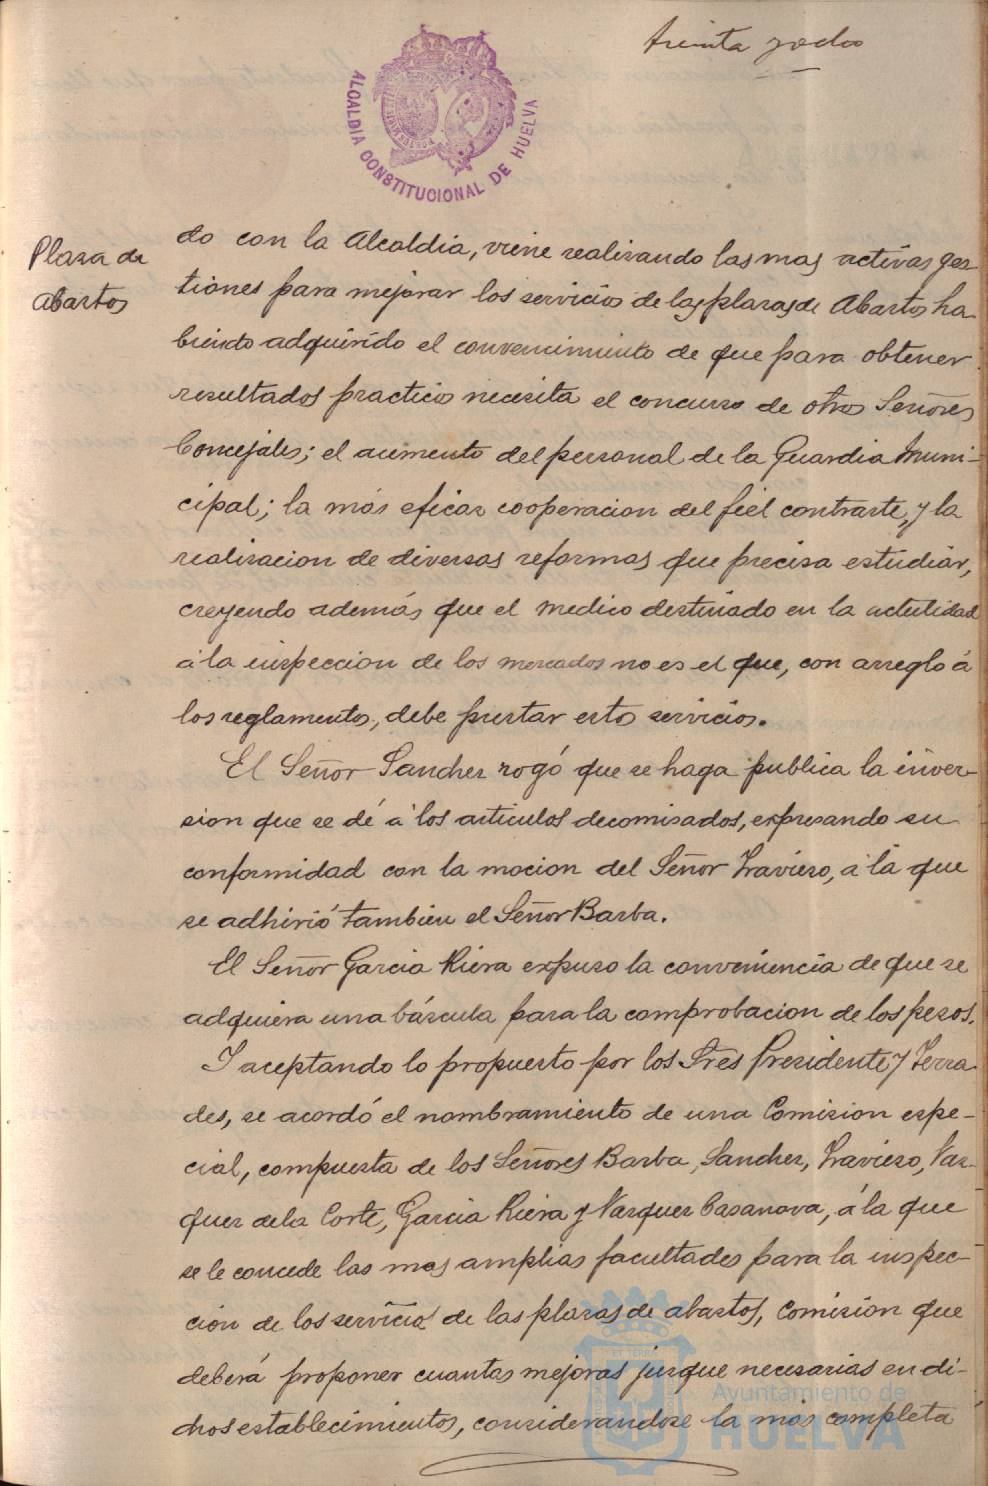 treinta y ocho
ALCALDIA CONSTITUCIONAL DE HUELVA
Plaza de
abastos
do con la Alcaldia, viene realizando las mas activas ges
tiones para mejorar los servicios de las plazas de Abastos ha
biendo adquirido el convencimiento de que para obtener
resultados practicos necesita el concurso de otros Señores
Concejales; el aumento del personal de la Guardia Muni-
cipal; la más eficaz cooperacion del fiel contraste, y la
realizacion de diversas reformas que precisa estudiar,
creyendo además que el medico destinado en la actulidad
á la inspeccion de los mercados no es el que, con arreglo á
los reglamentos, debe prestar estos servicios.
El Señor Sanchez rogó que se haga publica la inver-
sion que se dé á los articulos decomisados, expresando su
conformidad con la mocion del Señor Travieso, á la que
se adhirió tambien el Señor Barba.
El Señor Garcia Riera expuso la conveniencia de que se
adquiera una báscula para la comprobacion de los pesos.
Y aceptando lo propuesto por los Sres Presidente y Terra
des, se acordó el nombramiento de una Comision espe-
cial, compuesta de los Señores Barba, Sanchez, Travieso, Vaz-
quez de la Corte, Garcia Riera y Vazquez Casanova, á la que
se le concede las mas amplias facultades para la inspec-
cion de los servicios de las plazas de abastos, Comision que
deberá proponer cuantas mejoras juzgue necesarias en di-
chos establecimientos, considerandose la más completa
Ayuntamiento de
HUELVA